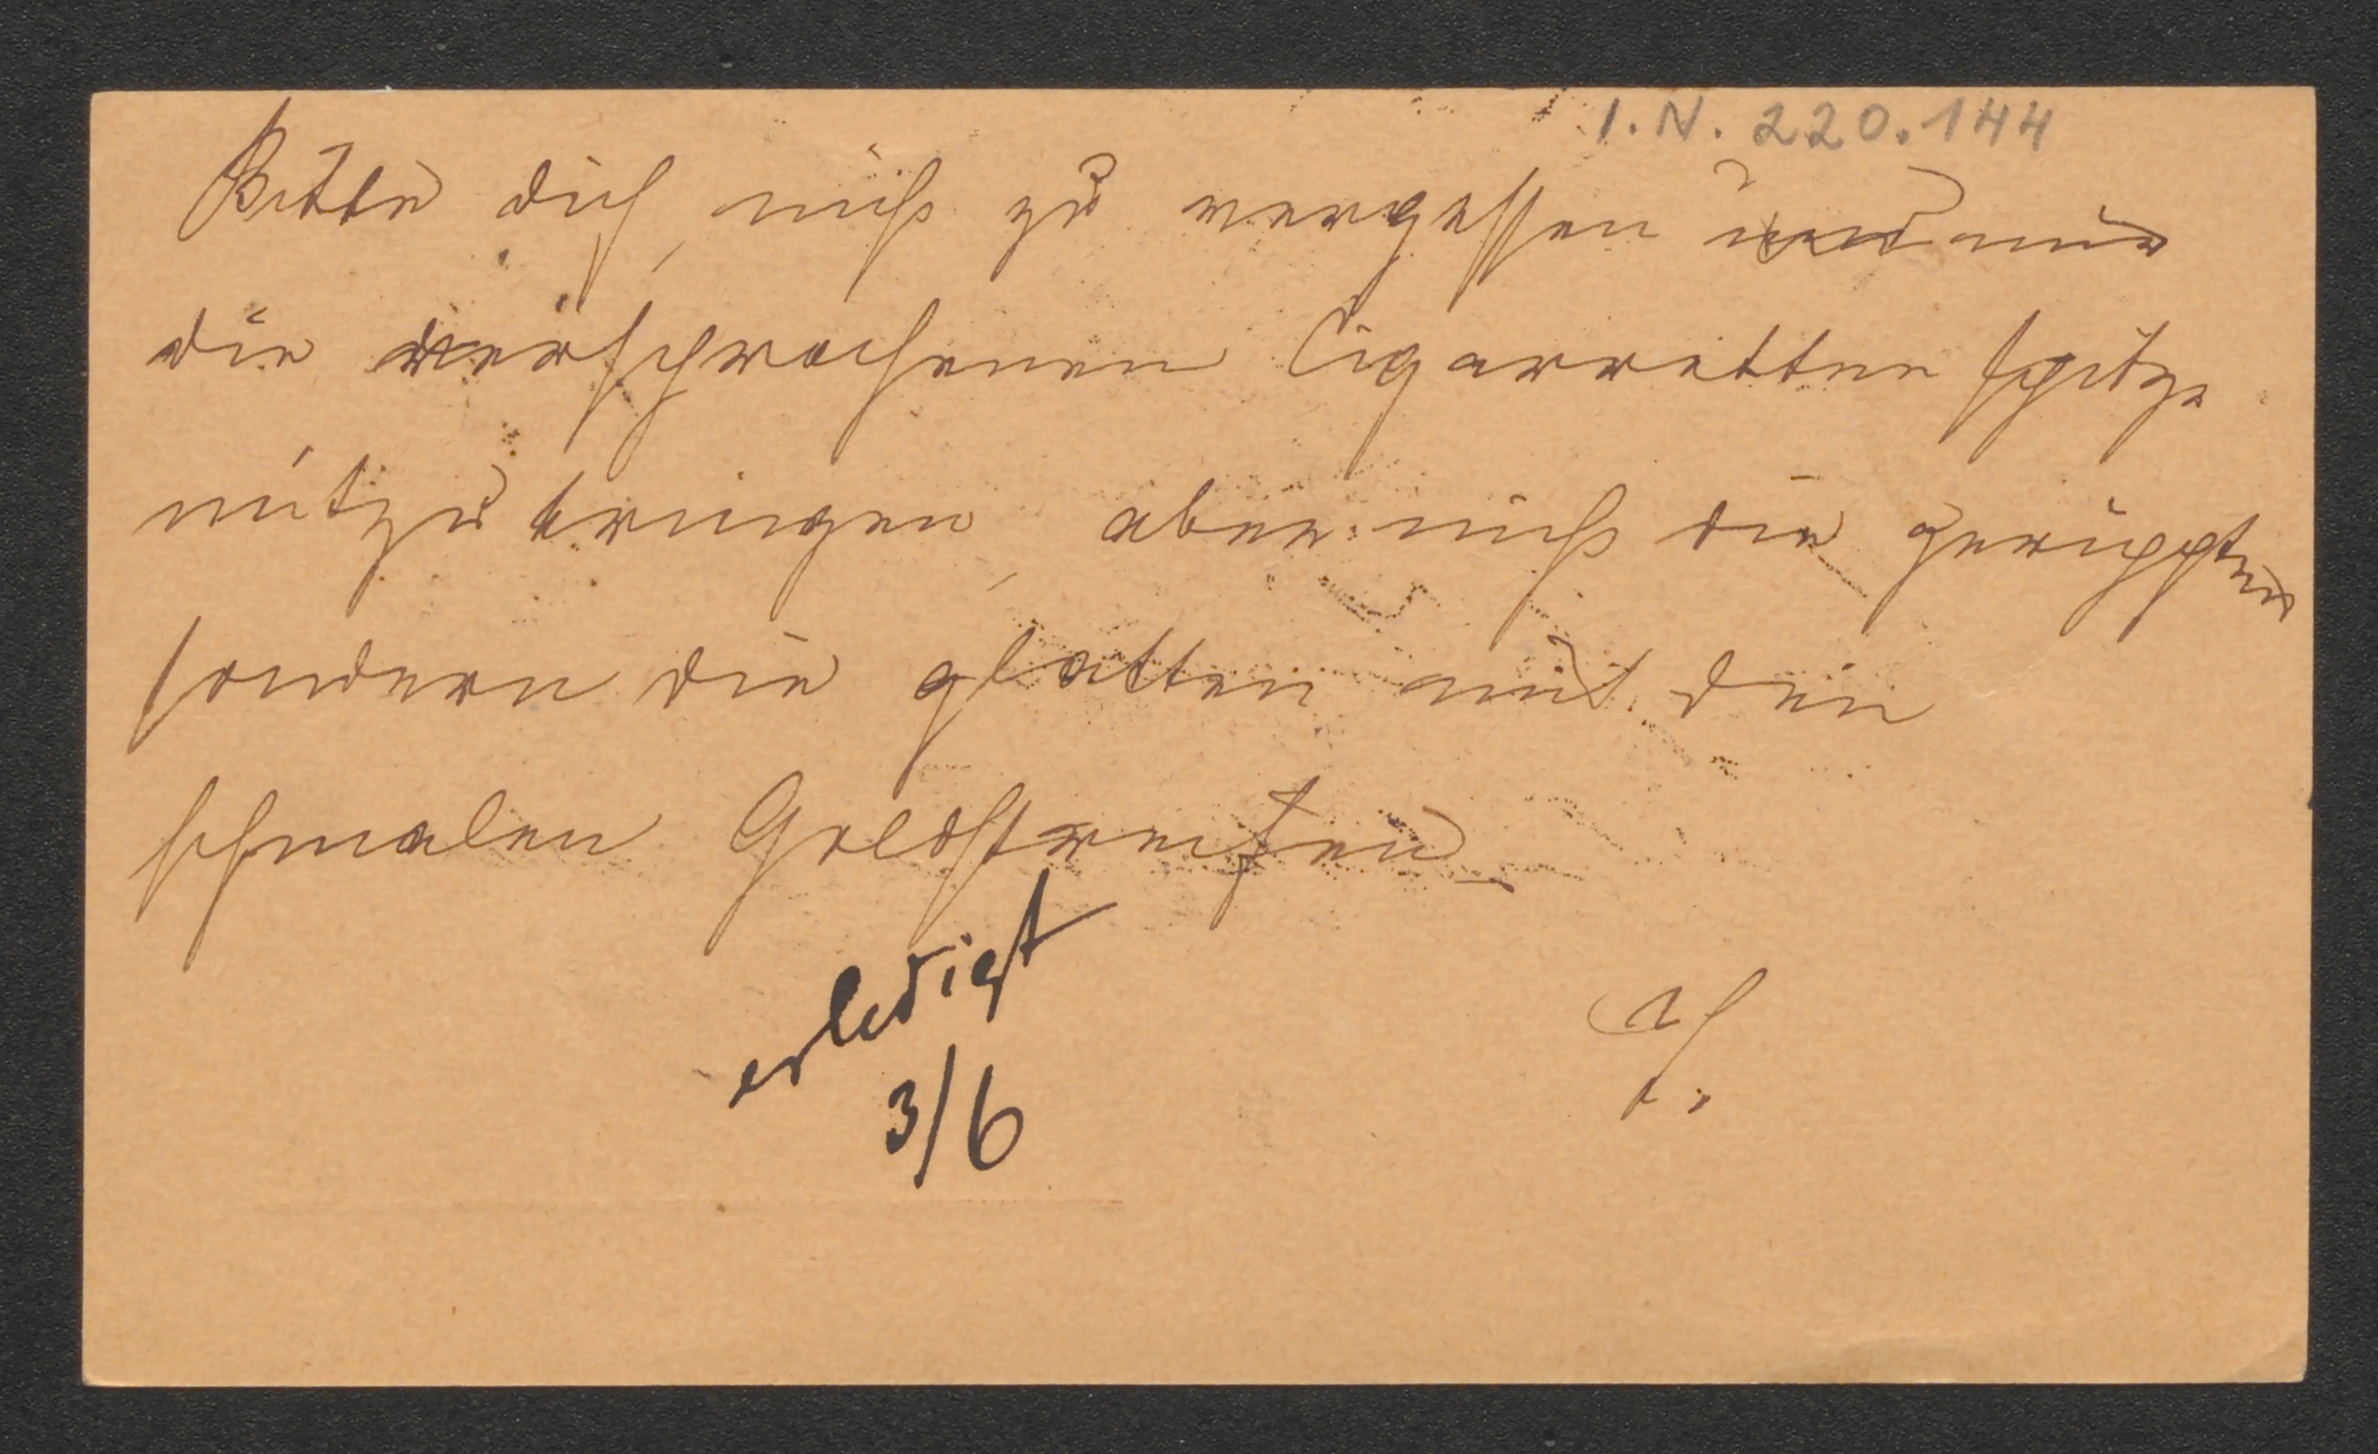 I.N. 220.144
Bitte dich, nicht zu vergessen und mir
die versprochenen Cigarretten spitze
mitzubringen, aber nicht die gerippten
sondern die glatten mit den
schmalen Goldstreifen
erledigt
3/6